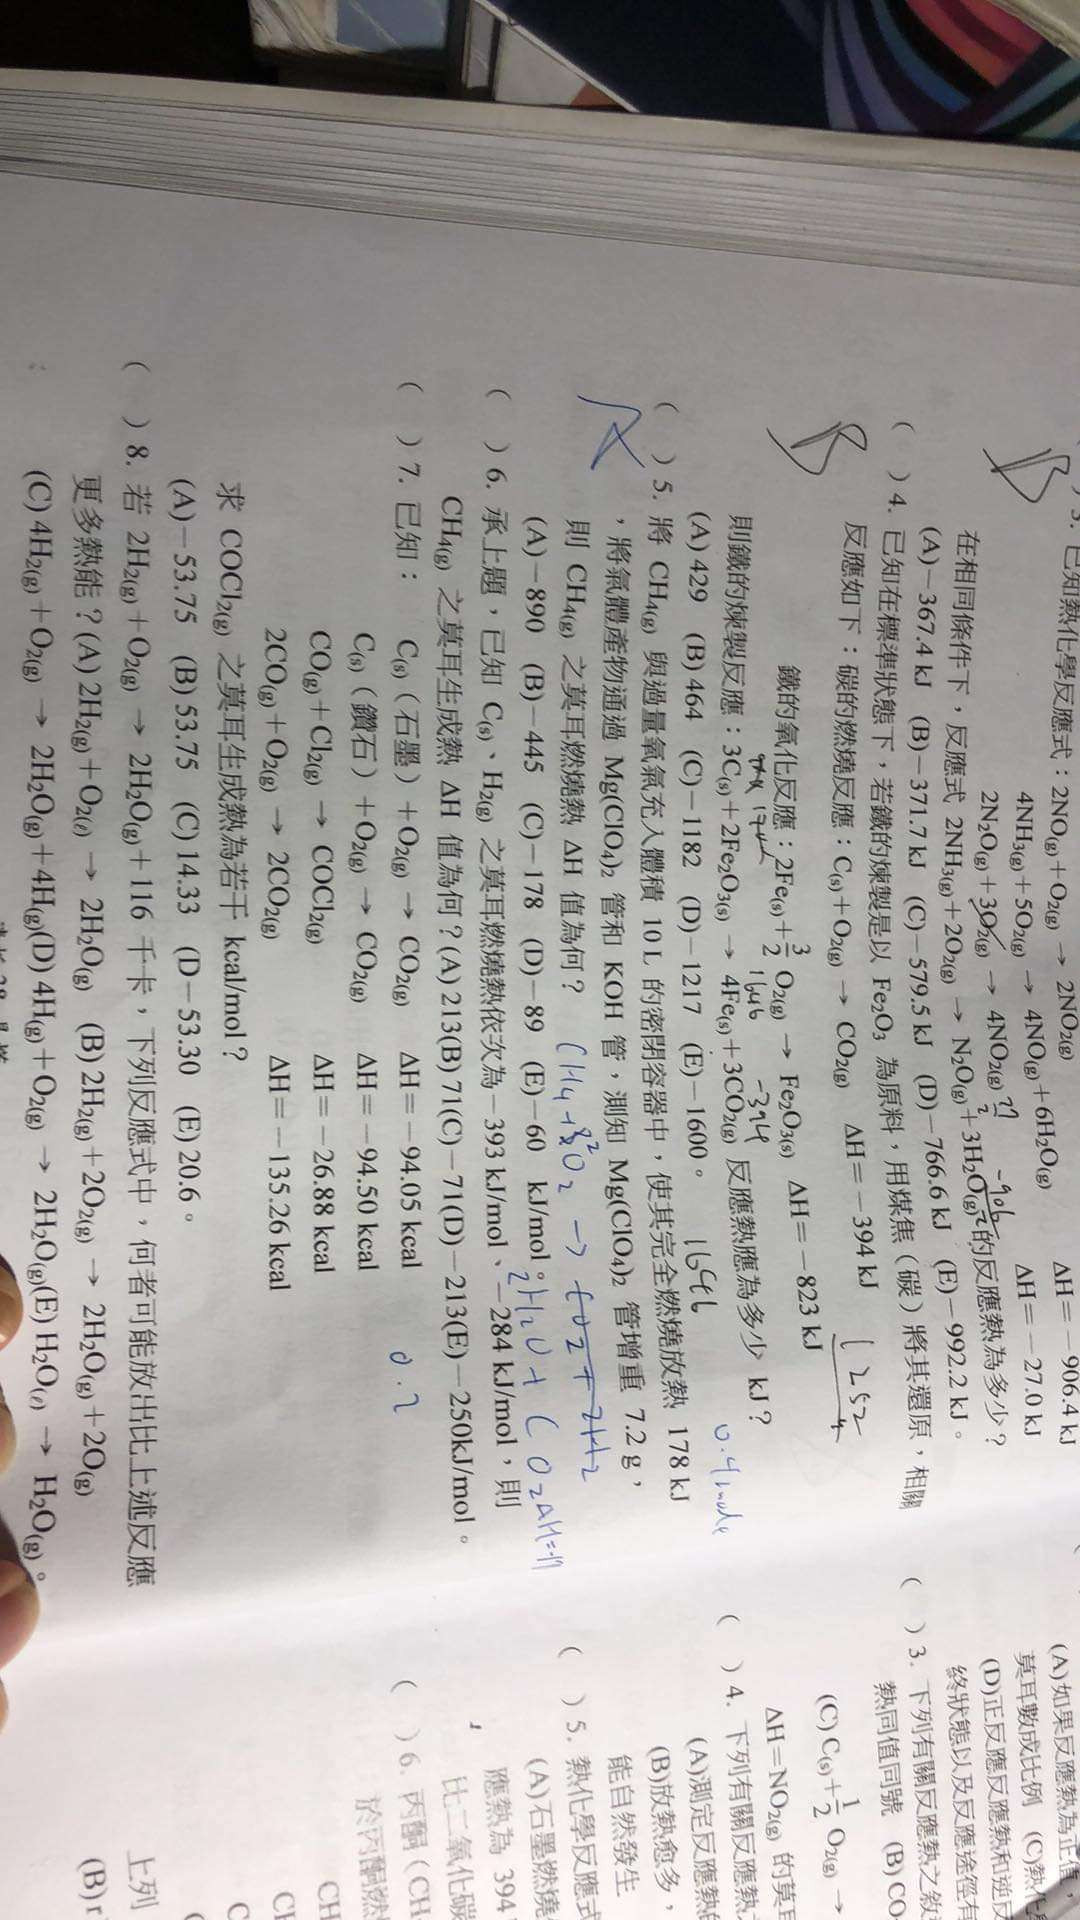 3. 已知熱化學反應式：2NO(g)+O2(g) → 2NO2(g)
4NH3(g)+5O2(g) → 4NO(g)+6H2O(g) ΔH=－906.4 kJ
2N2O(g)+3O2(g) → 4NO2(g) ΔH=－27.0 kJ
在相同條件下，反應式 2NH3(g)+2O2(g) → N2O(g)+3H2O(g) 的反應熱為多少？
-906
2
B
(A)－367.4 kJ (B)－371.7 kJ (C)－579.5 kJ (D)－766.6 kJ (E)－992.2 kJ。
( ) 4. 已知在標準狀態下，若鐵的煉製是以 Fe2O3 為原料，用煤焦（碳）將其還原，相關
反應如下：碳的燃燒反應：C(s)+O2(g) → CO2(g) ΔH=－394 kJ
鐵的氧化反應：2Fe(s)+3/2 O2(g) → Fe2O3(s) ΔH=－823 kJ
1252
1646 -394
則鐵的煉製反應：3C(s)+2Fe2O3(s) → 4Fe(s)+3CO2(g) 反應熱應為多少 kJ？
B
(A) 429 (B) 464 (C)－1182 (D)－1217 (E)－1600。
1646
0.4mole
( ) 5. 將 CH4(g) 與過量氧氣充入體積 10 L 的密閉容器中，使其完全燃燒放熱 178 kJ
，將氣體產物通過 Mg(ClO4)2 管和 KOH 管，測知 Mg(ClO4)2 管增重 7.2 g，
則 CH4(g) 之莫耳燃燒熱 ΔH 值為何？
A
(A)－890 (B)－445 (C)－178 (D)－89 (E)－60 kJ/mol。
2H2O+CO2 ΔH=-17
( ) 6. 承上題，已知 C(s)、H2(g) 之莫耳燃燒熱依次為－393 kJ/mol、－284 kJ/mol，則
CH4(g) 之莫耳生成熱 ΔH 值為何？(A) 213(B) 71(C)－71(D)－213(E)－250kJ/mol。
( ) 7. 已知： C(s)（石墨）+O2(g) → CO2(g) ΔH=－94.05 kcal
0.2
C(s)（鑽石）+O2(g) → CO2(g) ΔH=－94.50 kcal
CO(g)+Cl2(g) → COCl2(g) ΔH=－26.88 kcal
2CO(g)+O2(g) → 2CO2(g) ΔH=－135.26 kcal
求 COCl2(g) 之莫耳生成熱為若干 kcal/mol？
(A)－53.75 (B) 53.75 (C) 14.33 (D－53.30 (E) 20.6。
( ) 8. 若 2H2(g)+O2(g) → 2H2O(g)+116 千卡，下列反應式中，何者可能放出比上述反應
更多熱能？(A) 2H2(g)+O2(ℓ) → 2H2O(g) (B) 2H2(g)+2O2(g) → 2H2O(g)+2O(g)
(C) 4H2(g)+O2(g) → 2H2O(g)+4H(g)(D) 4H(g)+O2(g) → 2H2O(g)(E) H2O(ℓ) → H2O(g)。
(A)如果反應熱為正值，
莫耳數成比例 (C)熱化學
(D)正反應反應熱和逆反
( ) 3. 下列有關反應熱之敘
終狀態以及反應途徑有
熱同值同號 (B) CO
(C) C(s)+1/2 O2(g) →
ΔH=NO2(g) 的莫耳
( ) 4. 下列有關反應熱
(A)測定反應熱的
(B)放熱愈多，
能自然發生
( ) 5. 熱化學反應式
(A)石墨燃燒
應熱為 394
比二氧化碳
( ) 6. 丙酮（CH
於丙酮燃
CH
CH
C
上列
(B) r